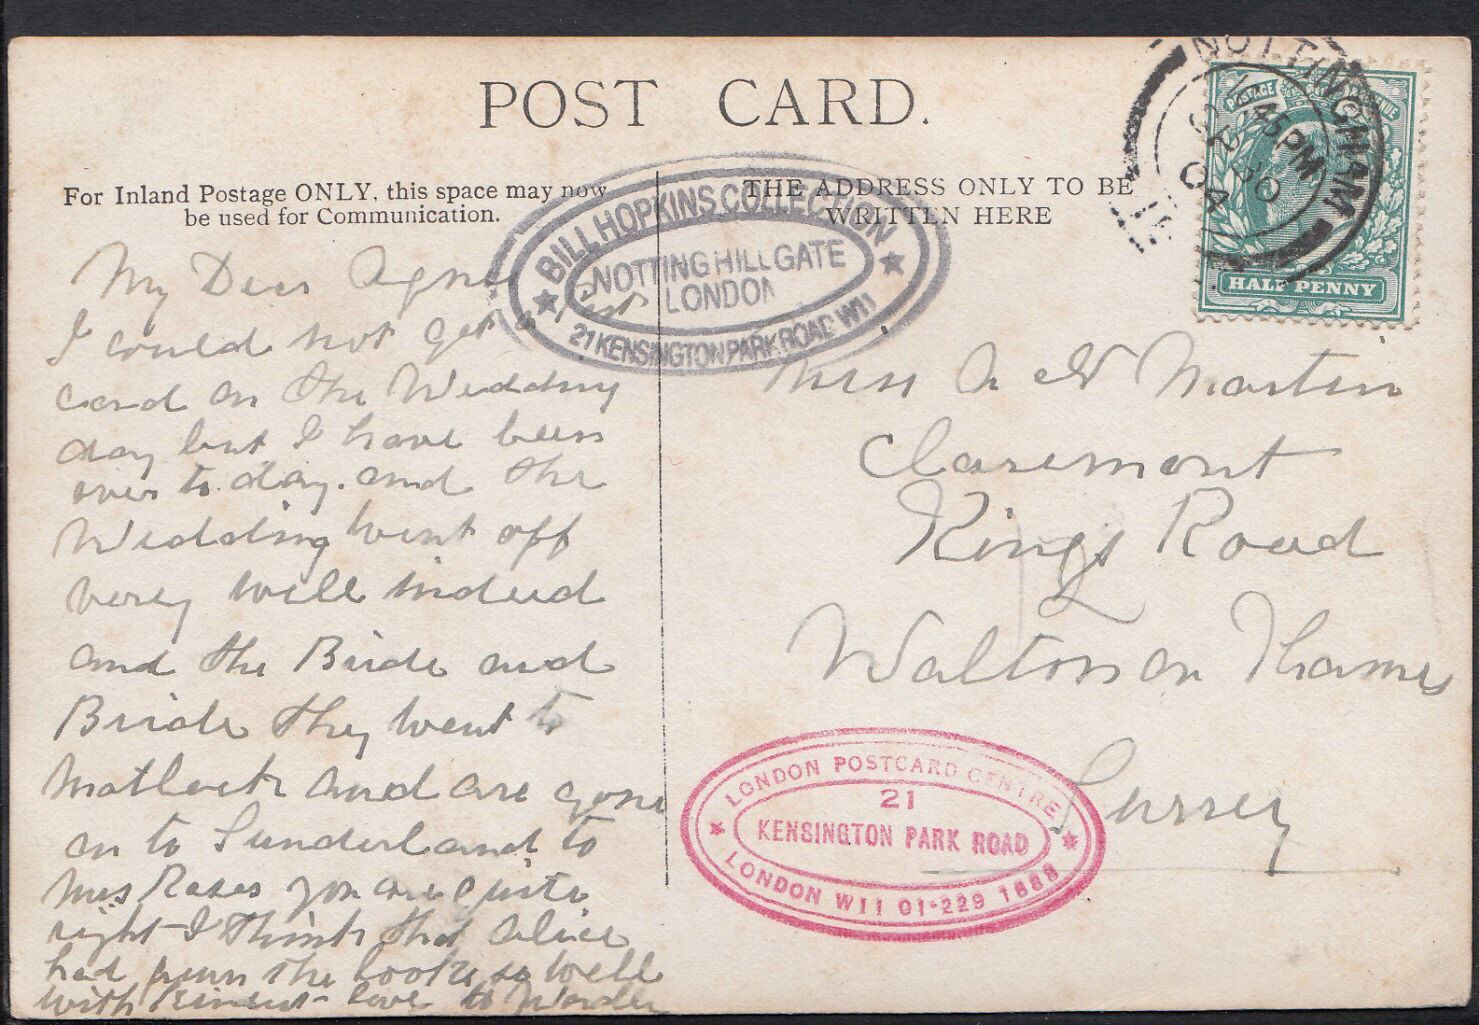 POST CARD.
For Inland Postage ONLY, this space may now
be used for Communication.
THE ADDRESS ONLY TO BE
WRITTEN HERE
NOTTINGHAM
45 PM
04
POSTAGE
REVENUE
HALF PENNY
BILL HOPKINS COLLECTION
NOTTING HILL GATE
LONDON
21 KENSINGTON PARK ROAD W11
My Dear
I could not get a Post
card on the Wedding
day but I have been
over to day. and the
Wedding went off
very well indeed
and the Bride and
Bride they went to
Matlock and are gone
on to Sunderland to
you are quite
right I think that Alice
had the books so well
with love to
Miss A Martin
Claremont
Kings Road
Walton on Thames
Surrey
LONDON POSTCARD CENTRE
21
KENSINGTON PARK ROAD
LONDON W11 01-229 1888